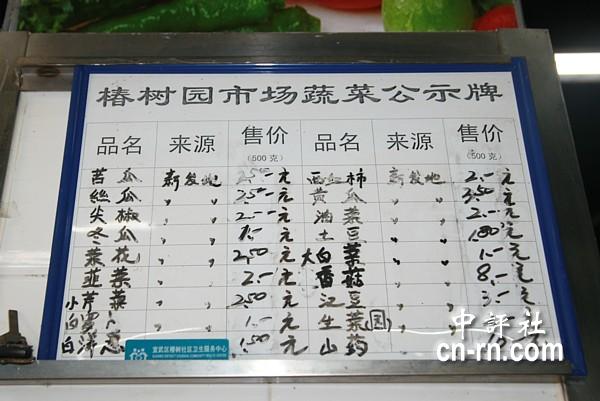 椿树园市场蔬菜公示牌
品名 来源 售价 (500克) 品名 来源 售价 (500克)
苦瓜 新发地 2.50元 西红柿 新发地 2.-元
丝瓜 〃 2.50元 黄瓜 〃 3.50元
尖椒 〃 2.-元 油菜 〃 2.-元
冬瓜 〃 1.-元 土豆 〃 1.80元
菜花 〃 2.50元 大白菜 〃 1.-元
韭菜 〃 2.-元 香菇 〃 8.-元
小芹菜 〃 2.50元 豆 〃 3.-元
白萝卜 〃 1.-元 生菜
白洋葱 〃 1.50元 山药
宣武区椿树社区卫生服务中心
中評社
cn-rn.com